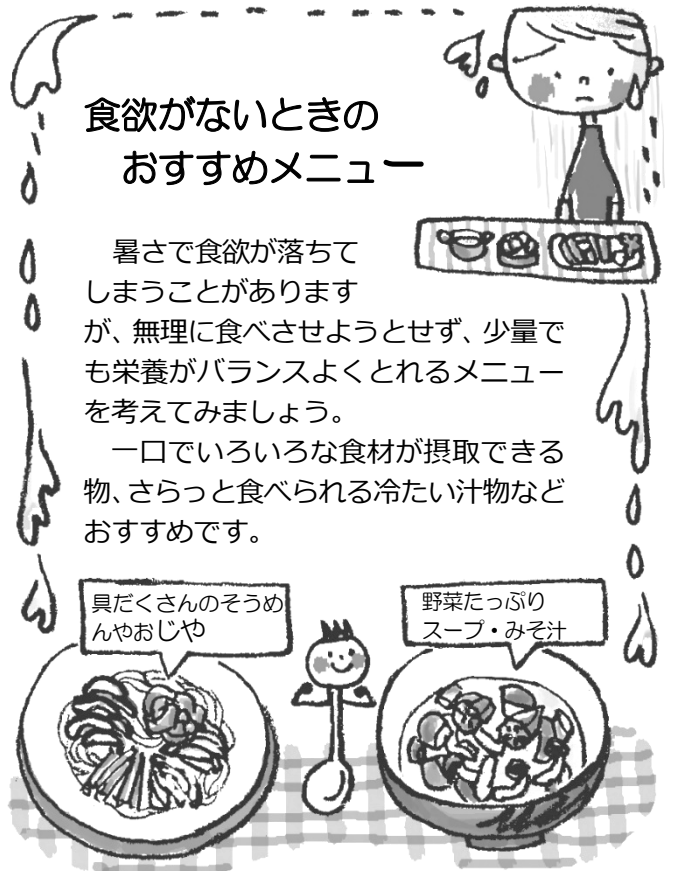 食欲がないときの
おすすめメニュー
暑さで食欲が落ちて
しまうことがあります
が、無理に食べさせようとせず、少量で
も栄養がバランスよくとれるメニュー
を考えてみましょう。
一口でいろいろな食材が摂取できる
物、さらっと食べられる冷たい汁物など
おすすめです。
具だくさんのそうめ
んやおじや
野菜たっぷり
スープ・みそ汁